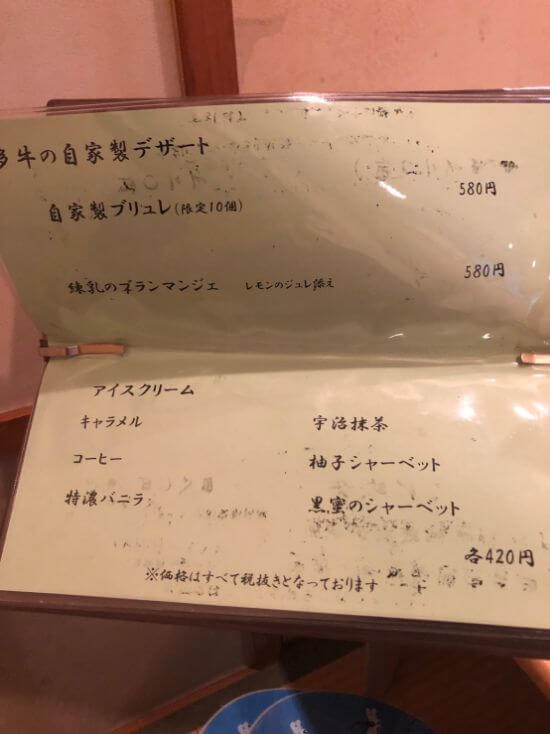 多牛の自家製デザート
580円
自家製ブリュレ(限定10個)
580円
練乳のブランマンジェ レモンのジュレ添え
アイスクリーム
キャラメル 宇治抹茶
コーヒー 柚子シャーベット
特濃バニラ 黒蜜のシャーベット
各420円
※価格はすべて税抜きとなっております